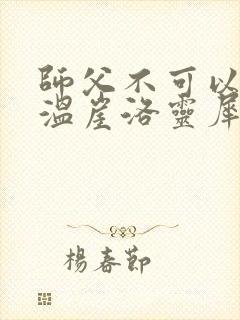 師父不可以
溫崖洛靈犀
楊春節